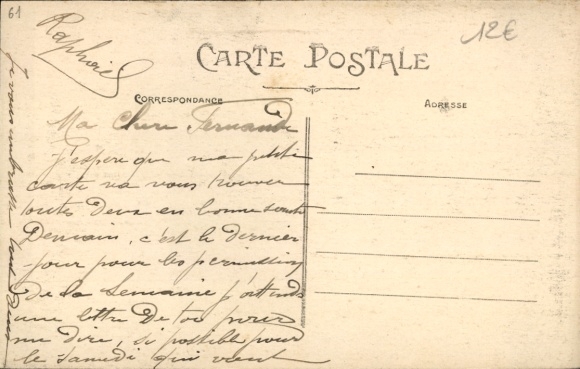 61
12€
Raphaël
CARTE POSTALE
CORRESPONDANCE
ADRESSE
Ma Chere Fernande
J'espere que ma petite
carte va vous trouver
toutes Deux en bonne santé
Demain, c'est le Dernier
jour pour les permission
De la Semaine j'attends
une lettre De toi pour
me dire, si possible pour
le samedi qui vient
Je vous embrasse tout Deux